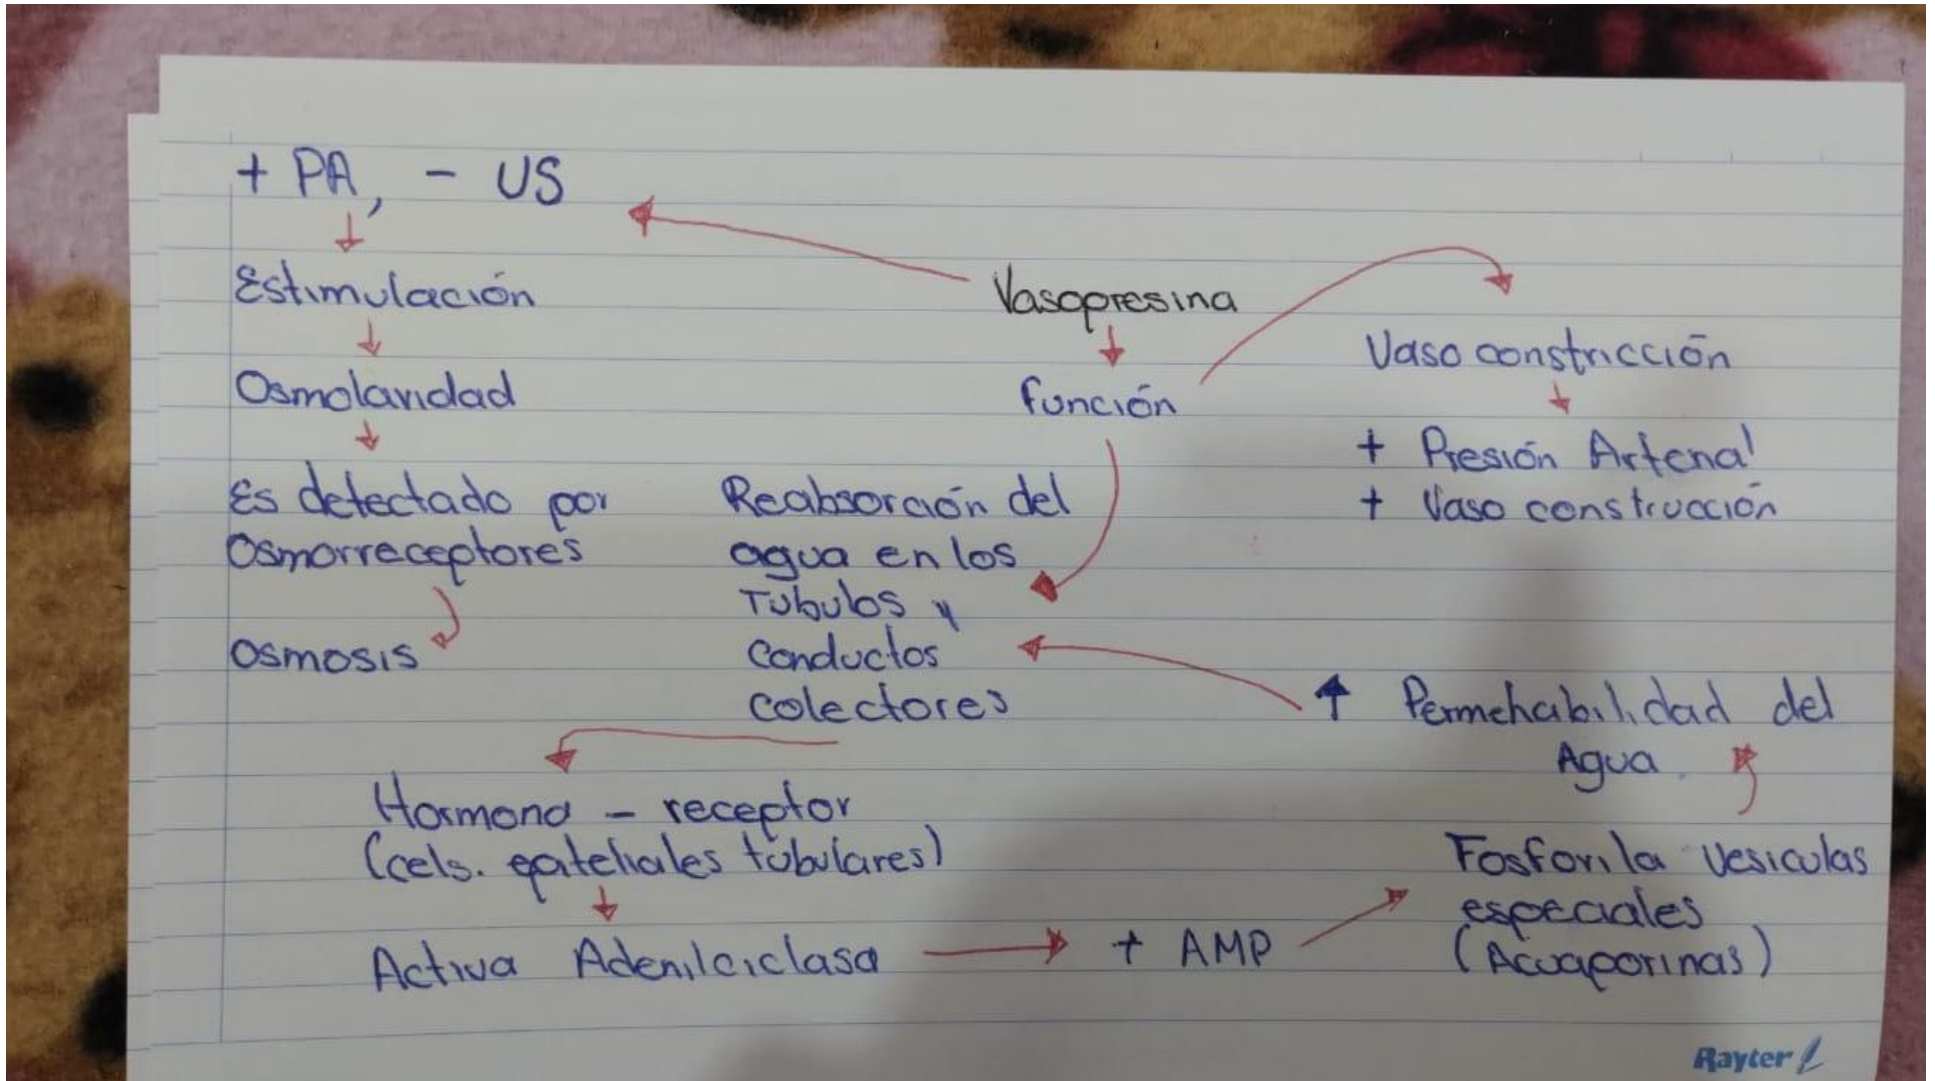 + PA, - US
Estimulación
Osmolaridad
Es detectado por
Osmorreceptores
Osmosis
Vasopresina
función
Vaso constricción
+ Presión Arterial
+ Vaso construcción
Reabsorción del
agua en los
Tubulos y
Conductos
colectores
↑ Permehabilidad del
Agua
Hormona - receptor
(cels. epiteliales tubulares)
Activa Adenilciclasa
+ AMP
Fosforila vesiculas
especiales
(Acuaporinas)
Rayter